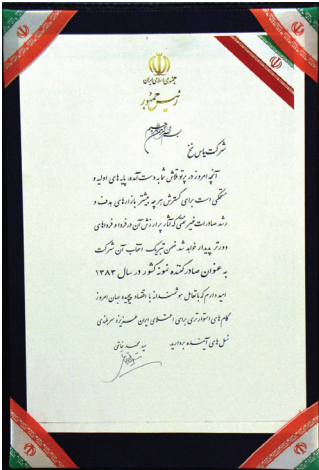 جمهوری اسلامی ایران
رئیس جمهور
بسم الله الرحمن الرحیم
شرکت یاس نخ
آنچه امروز در پرتو تلاش شما به دست آمده، پایه های اولیه و
مستحکمی است برای گسترش هر چه بیشتر بازارهای هدف و
رشد صادرات غیرنفتی که آثار پر ارزش آن در فردا و فرداهای
دورتر پدیدار خواهد شد. ضمن تبریک انتخاب آن شرکت
به عنوان صادرکننده نمونه کشور در سال ۱۳۸۳
امیدوارم که با تعامل هوشمندانه با اقتصاد پیچیده جهان امروز
گام های استوارتری برای اعتلای ایران عزیز و سرفرازی
نسل های آینده بردارید.
سید محمد خاتمی